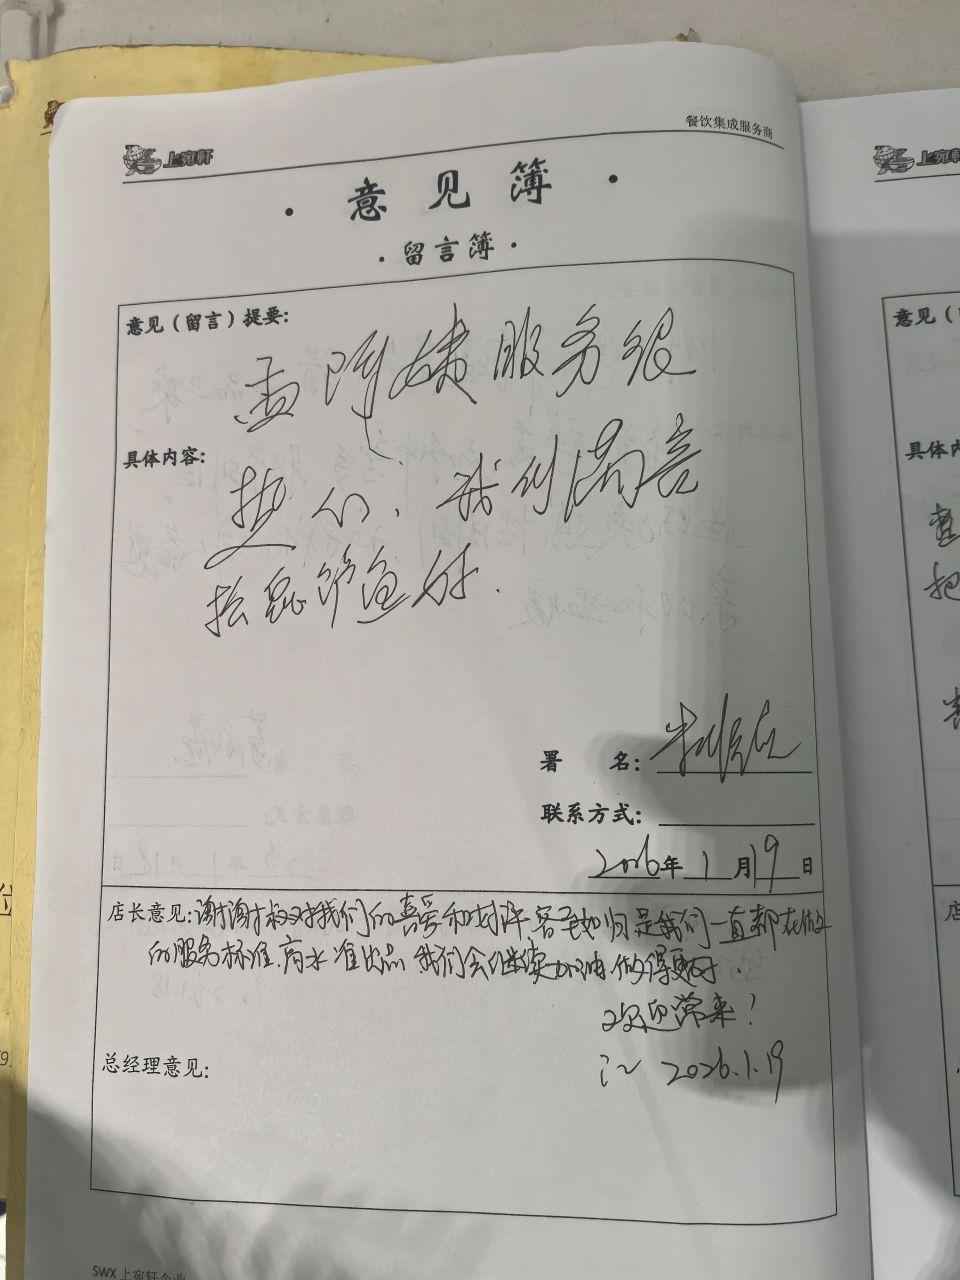 餐饮集成服务商
上宛轩
上宛轩
· 意见簿 ·
· 留言簿 ·
意见（留言）提要：
孟阿姨服务很
具体内容：
热心、我们满意
署 名：
联系方式：
2026年1月19日
店长意见：谢谢叔对我们的喜爱和好评 客至如归是我们一直都在做
的服务标准.高水准出品 我们会继续加油 做得更好.
欢迎常来！
江 2026.1.19
总经理意见：
SWX 上宛轩企业
意见（
具体内
把